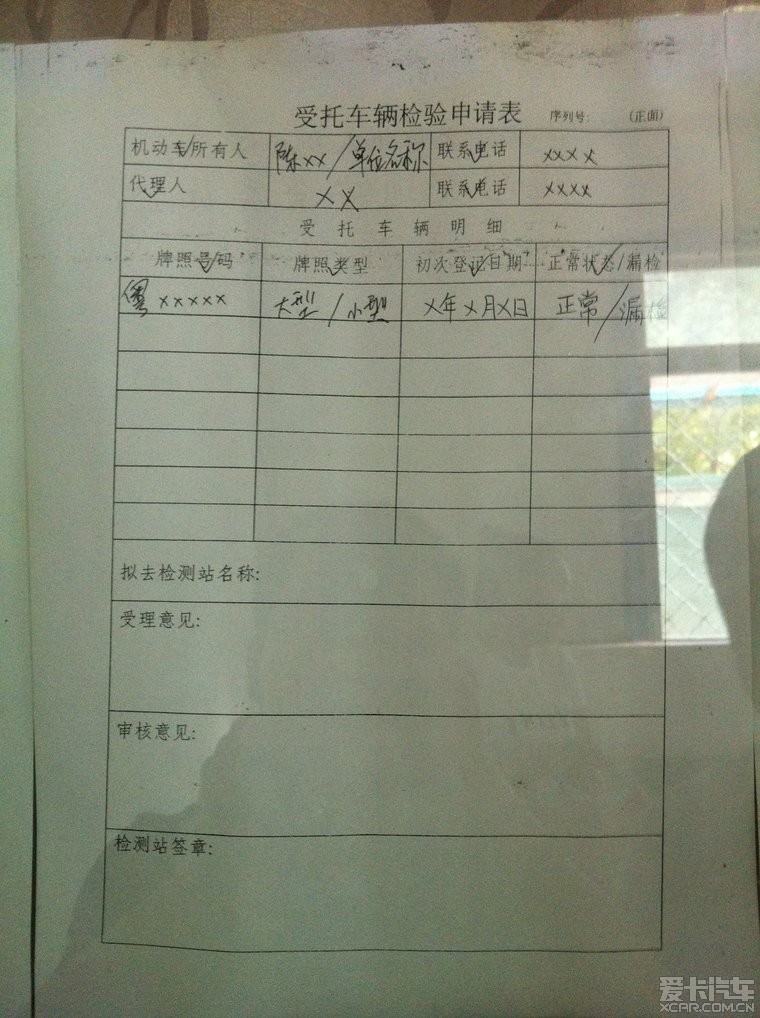 受托车辆检验申请表 序列号: (正面)
机动车/所有人 陈xx/单位名称 联系电话 xxxx
代理人 xx 联系电话 xxxx
受托车辆明细
牌照号码 牌照类型 初次登记日期 正常状态/漏检
粤xxxxx 大型/小型 x年x月x日 正常/漏检
拟去检测站名称:
受理意见:
审核意见:
检测站签章:
爱卡汽车
XCAR.COM.CN